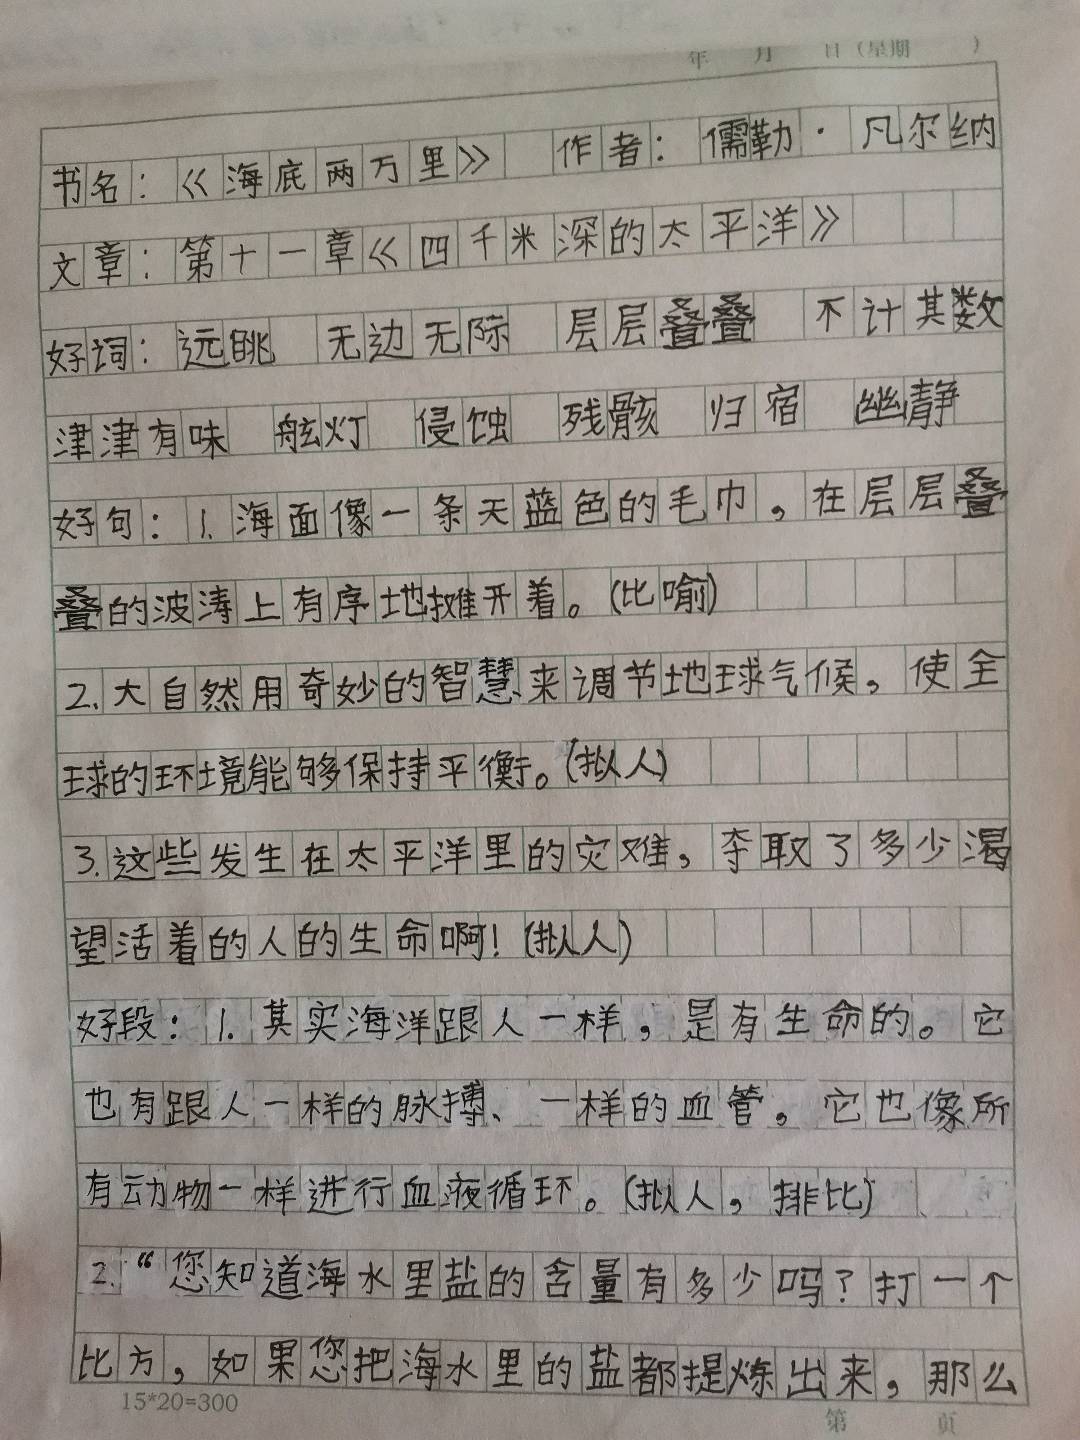 年 月 日（星期 ）
书名：《海底两万里》 作者：儒勒·凡尔纳
文章：第十一章《四千米深的太平洋》
好词：远眺 无边无际 层层叠叠 不计其数
津津有味 舷灯 侵蚀 残骸 归宿 幽静
好句：1.海面像一条天蓝色的毛巾，在层层叠
叠的波涛上有序地摊开着。(比喻)
2.大自然用奇妙的智慧来调节地球气候，使全
球的环境能够保持平衡。(拟人)
3.这些发生在太平洋里的灾难，夺取了多少渴
望活着的人的生命啊！(拟人)
好段：1.其实海洋跟人一样，是有生命的。它
也有跟人一样的脉搏、一样的血管。它也像所
有动物一样进行血液循环。(拟人，排比)
2.“您知道海水里盐的含量有多少吗？打一个
比方，如果您把海水里的盐都提炼出来，那么
15*20=300
第 页